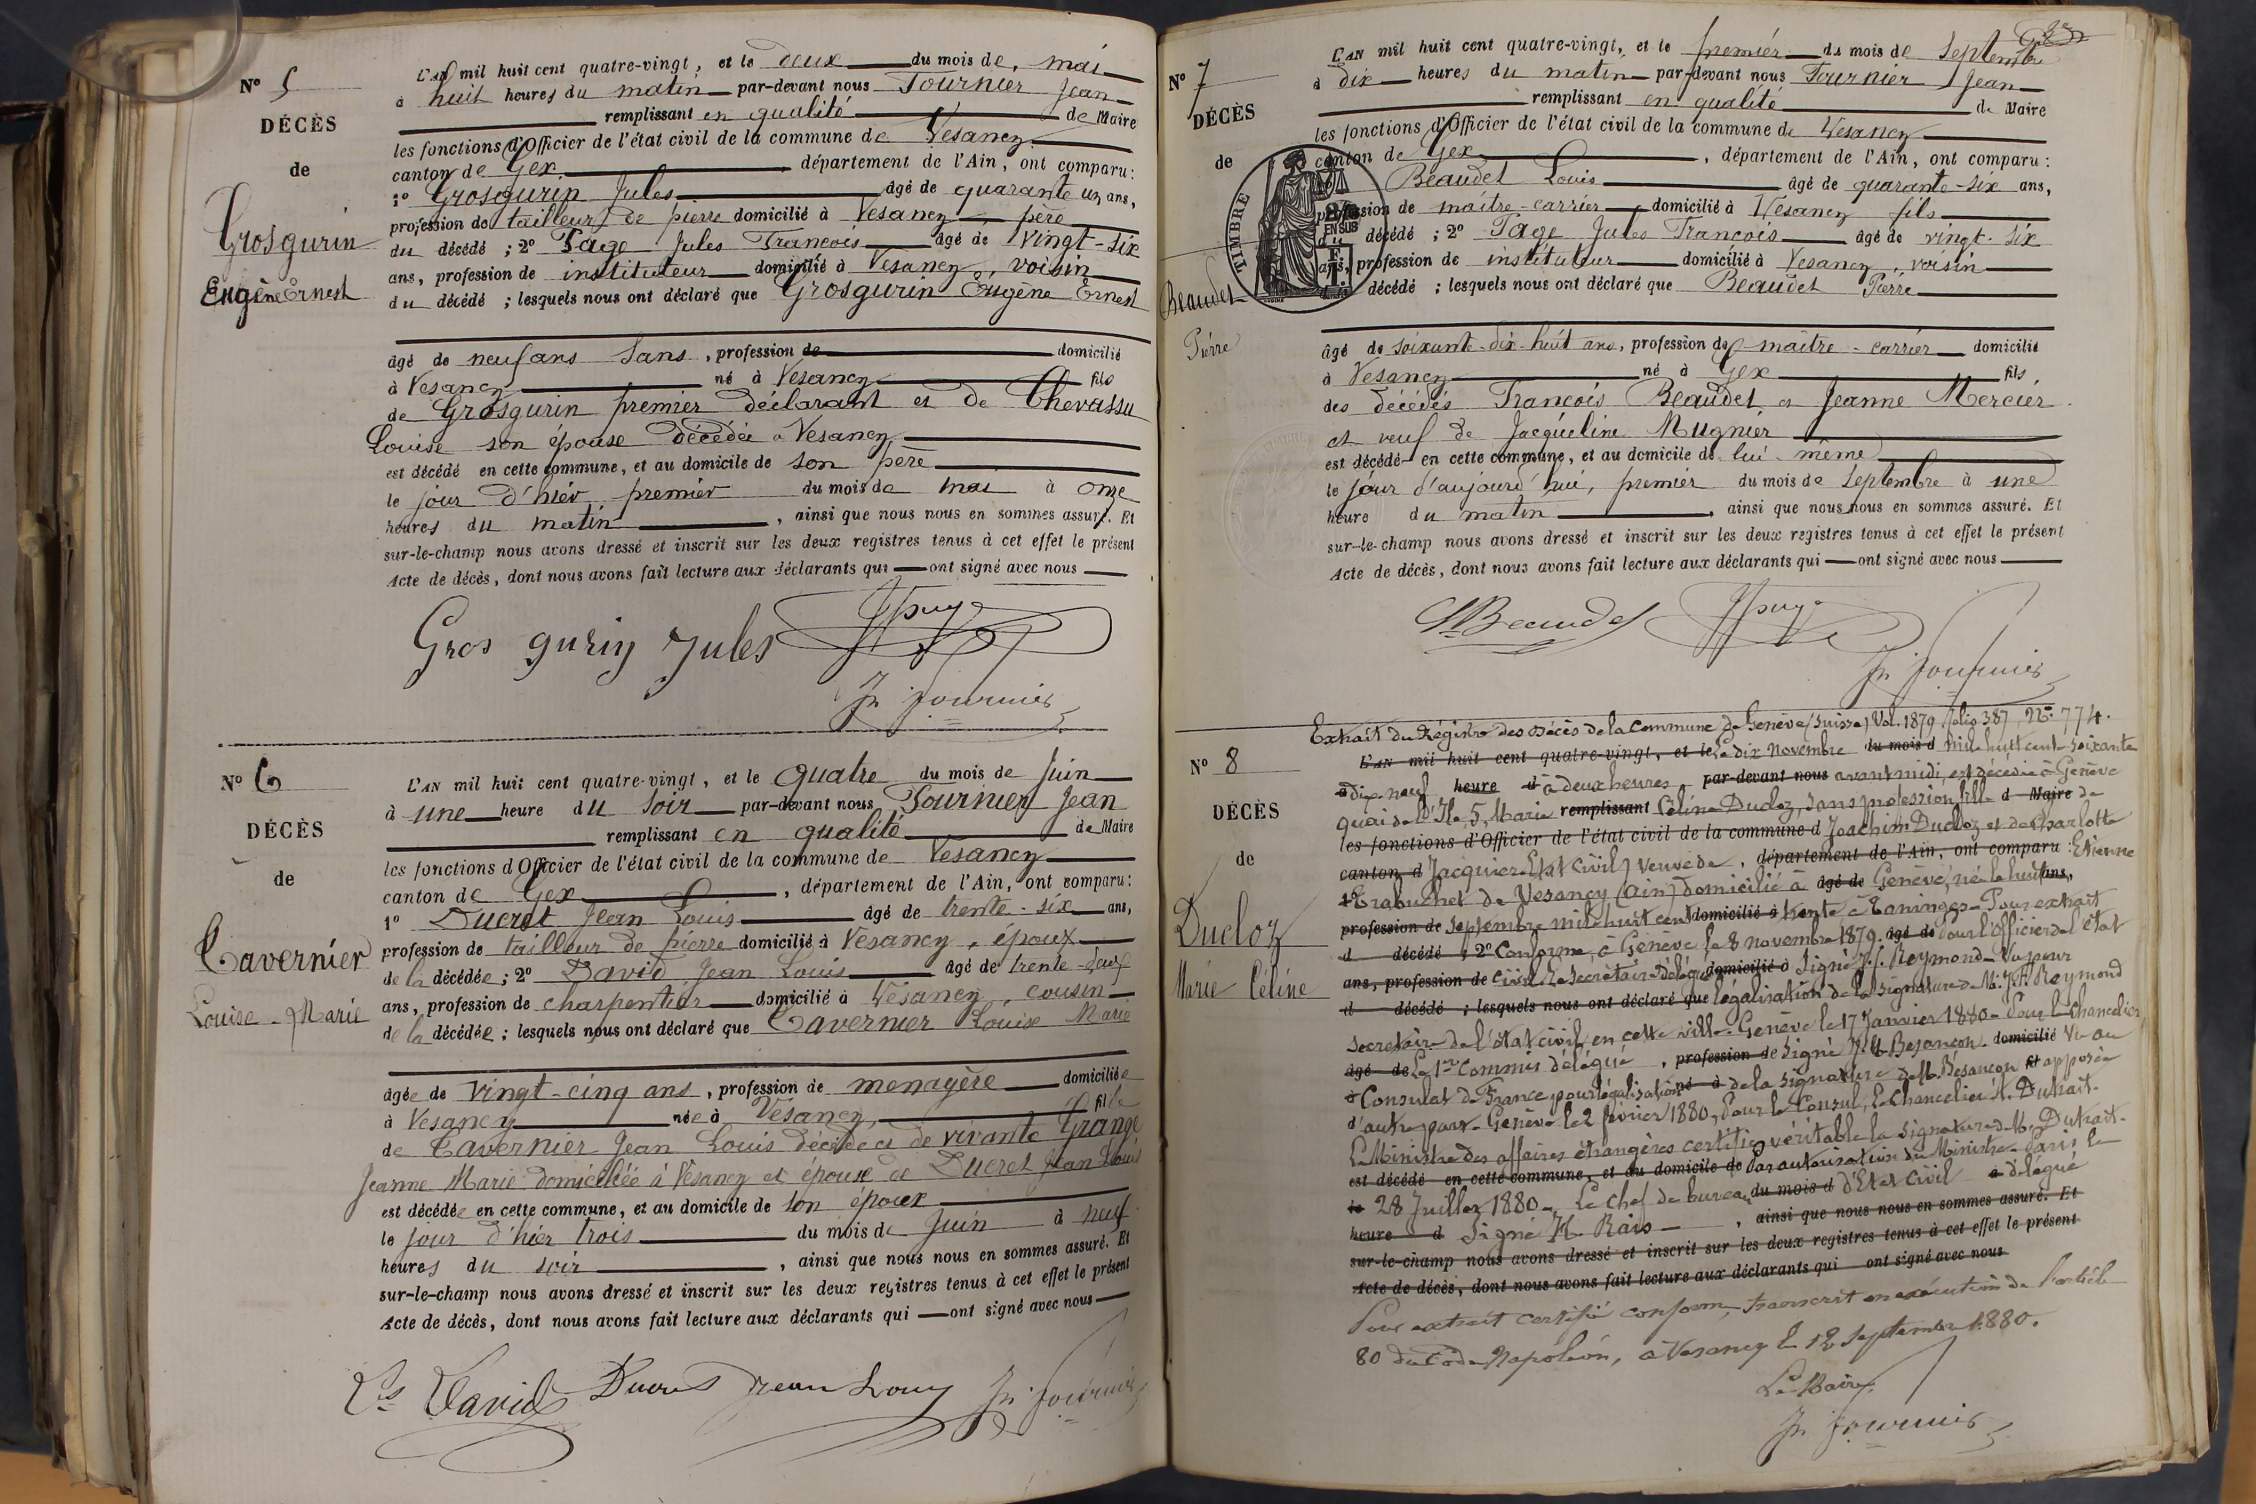 N° 5
DÉCÈS
de
Grosgurin
Eugène Ernest
L'AN mil huit cent quatre-vingt, et le deux du mois de mai
à huit heures du matin par-devant nous Fournier Jean
remplissant en qualité de Maire
les fonctions d'Officier de l'état civil de la commune de Vesancy
canton de Gex département de l'Ain, ont comparu :
1° Grosgurin Jules âgé de quarante un ans,
profession de tailleur de pierre domicilié à Vesancy, père
du décédé ; 2° Page Jules François âgé de vingt-six
ans, profession de instituteur domicilié à Vesancy, voisin
du décédé ; lesquels nous ont déclaré que Grosgurin Eugène Ernest
âgé de neuf ans sans, profession de domicilié
à Vesancy né à Vesancy fils
de Grosgurin premier déclarant et de Chevassu
Louise son épouse décédée à Vesancy
est décédé en cette commune, et au domicile de son père
le jour d'hier premier du mois de mai à onze
heures du matin, ainsi que nous nous en sommes assuré. Et
sur-le-champ nous avons dressé et inscrit sur les deux registres tenus à cet effet le présent
Acte de décès, dont nous avons fait lecture aux déclarants qui ont signé avec nous
Gros gurin Jules JPage
Jn Fournier
N° 6
DÉCÈS
de
Tavernier
Louise-Marie
L'AN mil huit cent quatre-vingt, et le quatre du mois de juin
à une heure du soir par-devant nous Fournier Jean
remplissant en qualité de Maire
les fonctions d'Officier de l'état civil de la commune de Vesancy
canton de Gex, département de l'Ain, ont comparu :
1° Ducret Jean Louis âgé de trente-six ans,
profession de tailleur de pierre domicilié à Vesancy, époux
de la décédée ; 2° David Jean Louis âgé de trente-deux
ans, profession de charpentier domicilié à Vesancy, cousin
de la décédée ; lesquels nous ont déclaré que Tavernier Louise Marie
âgée de vingt-cinq ans, profession de menagère domiciliée
à Vesancy née à Vesancy, fille
de Tavernier Jean Louis décédé et de vivante Grange
Jeanne Marie domiciliée à Vesancy et épouse de Ducret Jean Louis
est décédée en cette commune, et au domicile de son époux
le jour d'hier trois du mois de juin à neuf
heures du soir, ainsi que nous nous en sommes assuré. Et
sur-le-champ nous avons dressé et inscrit sur les deux registres tenus à cet effet le présent
Acte de décès, dont nous avons fait lecture aux déclarants qui ont signé avec nous
Ls David Ducret Jean Louis Jn Fournier
N° 7
DÉCÈS
de
Beaudet
Pierre
TIMBRE
EN SUS
L'AN mil huit cent quatre-vingt, et le premier du mois de Septembre
à dix heures du matin par-devant nous Fournier Jean
remplissant en qualité de Maire
les fonctions d'Officier de l'état civil de la commune de Vesancy
canton de Gex, département de l'Ain, ont comparu :
Beaudet Louis âgé de quarante-six ans,
profession de maître-carrier domicilié à Vesancy fils
du décédé ; 2° Page Jules François âgé de vingt-six
ans, profession de instituteur domicilié à Vesancy, voisin
du décédé ; lesquels nous ont déclaré que Beaudet Pierre
âgé de soixante-dix-huit ans, profession de maître-carrier domicilié
à Vesancy né à Gex fils
des décédés François Beaudet et Jeanne Mercier
et veuf de Jacqueline Mugnier
est décédé en cette commune, et au domicile de lui-même
le jour d'aujourd'hui, premier du mois de Septembre à une
heure du matin, ainsi que nous nous en sommes assuré. Et
sur-le-champ nous avons dressé et inscrit sur les deux registres tenus à cet effet le présent
Acte de décès, dont nous avons fait lecture aux déclarants qui ont signé avec nous
Ls Beaudet JPage
Jn Fournier
N° 8
DÉCÈS
de
Ducloz
Marie Céline
Extrait du Régistre des Décès de la Commune de Genève (Suisse) Vol. 1879 folio 387 N° 774.
L'AN mil huit cent quatre-vingt, et le Le dix Novembre du mois d mil huit cent soixante
à dix-neuf heure d à deux heures, par-devant nous avant midi, est décédée à Genève
quai de l'Ile, 5, Marie remplissant Céline Ducloz, sans profession, fille d Maire de
les fonctions d'Officier de l'état civil de la commune d Joachim Ducloz et de Charlotte
canton d Jacquier (Etat Civil) veuve de, département de l'Ain, ont comparu : Etienne
1° Trabuchet de Vesancy (Ain) domicilié à âgé de Genève, née le huit ans,
profession de Septembre mil huit cent domicilié à trente à Taninges. Pour extrait
d décédé ; 2° Conforme, à Genève le 8 novembre 1879. âgé de Pour l'Officier de l'état
ans, profession de Civil Le Secrétaire Délégué domicilié à Signé J. F. Reymond. Vu pour
d décédé ; lesquels nous ont déclaré que légalisation de la Signature de M. J. F. Reymond
secretaire de l'état civil en cette ville. Genève le 17 Janvier 1880. Pour le Chancelier,
âgé de Le 1er Commis délégué, profession de Signé Besançon. domicilié Vu au
à Consulat de France pour légalisation né à de la Signature de M. Besançon fils apposée
d'autre part. Genève le 2 février 1880, Pour le Consul, Le Chancelier Dutrait.
Le Ministre des affaires étrangères certifie véritable la Signature de M. Dutrait.
est décédé en cette commune, et au domicile de Par autorisation du Ministre. Paris le
le 28 Juillet 1880. Le Chef de bureau du mois d d'Etat Civil à délégué
heure d Signé H. Rais, ainsi que nous nous en sommes assuré. Et
sur-le-champ nous avons dressé et inscrit sur les deux registres tenus à cet effet le présent
Acte de décès, dont nous avons fait lecture aux déclarants qui ont signé avec nous
Pour extrait certifié conforme, transcrit en exécution de l'article
80 du Code Napoléon, à Vesancy le 12 Septembre 1880.
Le Maire,
Jn Fournier